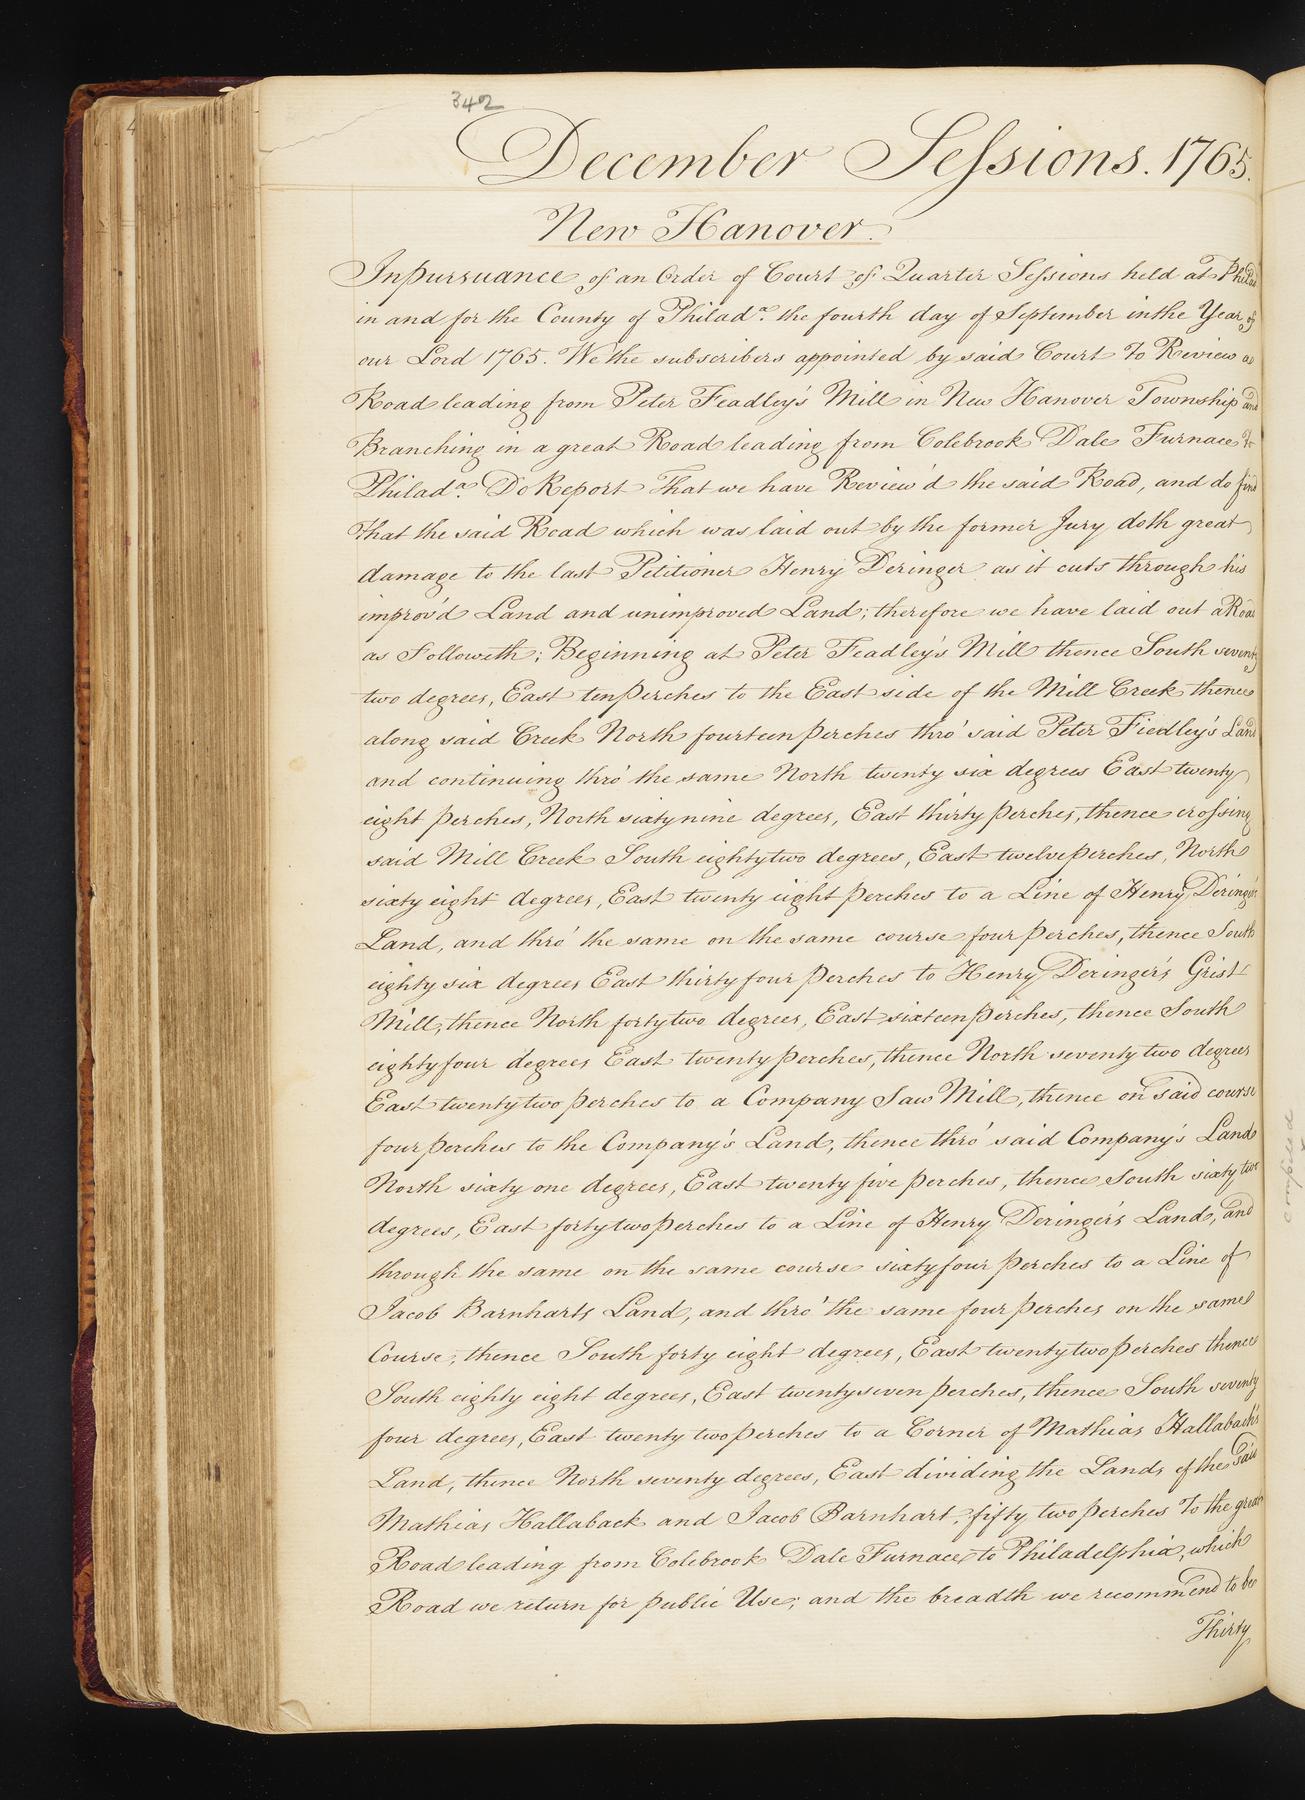 342
December Sessions. 1765.
New Hanover.
In pursuance of an Order of Court of Quarter Sessions held at Philada
in and for the County of Philada. the fourth day of September in the Year of
our Lord 1765. We the subscribers appointed by said Court To Review a
Road leading from Peter Feadley's Mill in New Hanover Township and
Branching in a great Road leading from Colebrook Dale Furnace to
Philada. Do Report That we have Review'd the said Road, and do find
that the said Road which was laid out by the former Jury doth great
damage to the last Petitioner Henry Deringer as it cuts through his
improv'd Land and unimproved Land; therefore we have laid out a Road
as Followeth; Beginning at Peter Feadley's Mill thence South seventy
two degrees, East ten perches to the East side of the Mill Creek thence
along said Creek North fourteen perches thro' said Peter Fiedley's Land
and continuing thro' the same North twenty six degrees East twenty
eight perches, North sixty nine degrees, East thirty perches, thence crossing
said Mill Creek South eighty two degrees, East twelve perches, North
sixty eight degrees, East twenty eight perches to a Line of Henry Deringer's
Land, and thro' the same on the same course four perches, thence South
eighty six degrees East thirty four perches to Henry Deringer's Grist
Mill, thence North forty two degrees, East sixteen perches, thence South
eighty four degrees East twenty perches, thence North seventy two degrees
East twenty two perches to a Company Saw Mill, thence on said course
four perches to the Company's Land, thence thro' said Company's Land
North sixty one degrees, East twenty five perches, thence South sixty two
degrees, East forty two perches to a Line of Henry Deringer's Land, and
through the same on the same course sixty four perches to a Line of
Jacob Barnharts Land, and thro' the same four perches on the same
Course; thence South forty eight degrees, East twenty two perches thence
South eighty eight degrees, East twenty seven perches, thence South seventy
four degrees, East twenty two perches to a Corner of Mathias Hallaback's
Land, thence North seventy degrees, East dividing the Lands of the said
Mathias Hallaback and Jacob Barnhart, fifty two perches To the great
Road leading from Colebrook Dale Furnace to Philadelphia, which
Road we return for public Use; and the breadth we recommend to be
Thirty
compiled